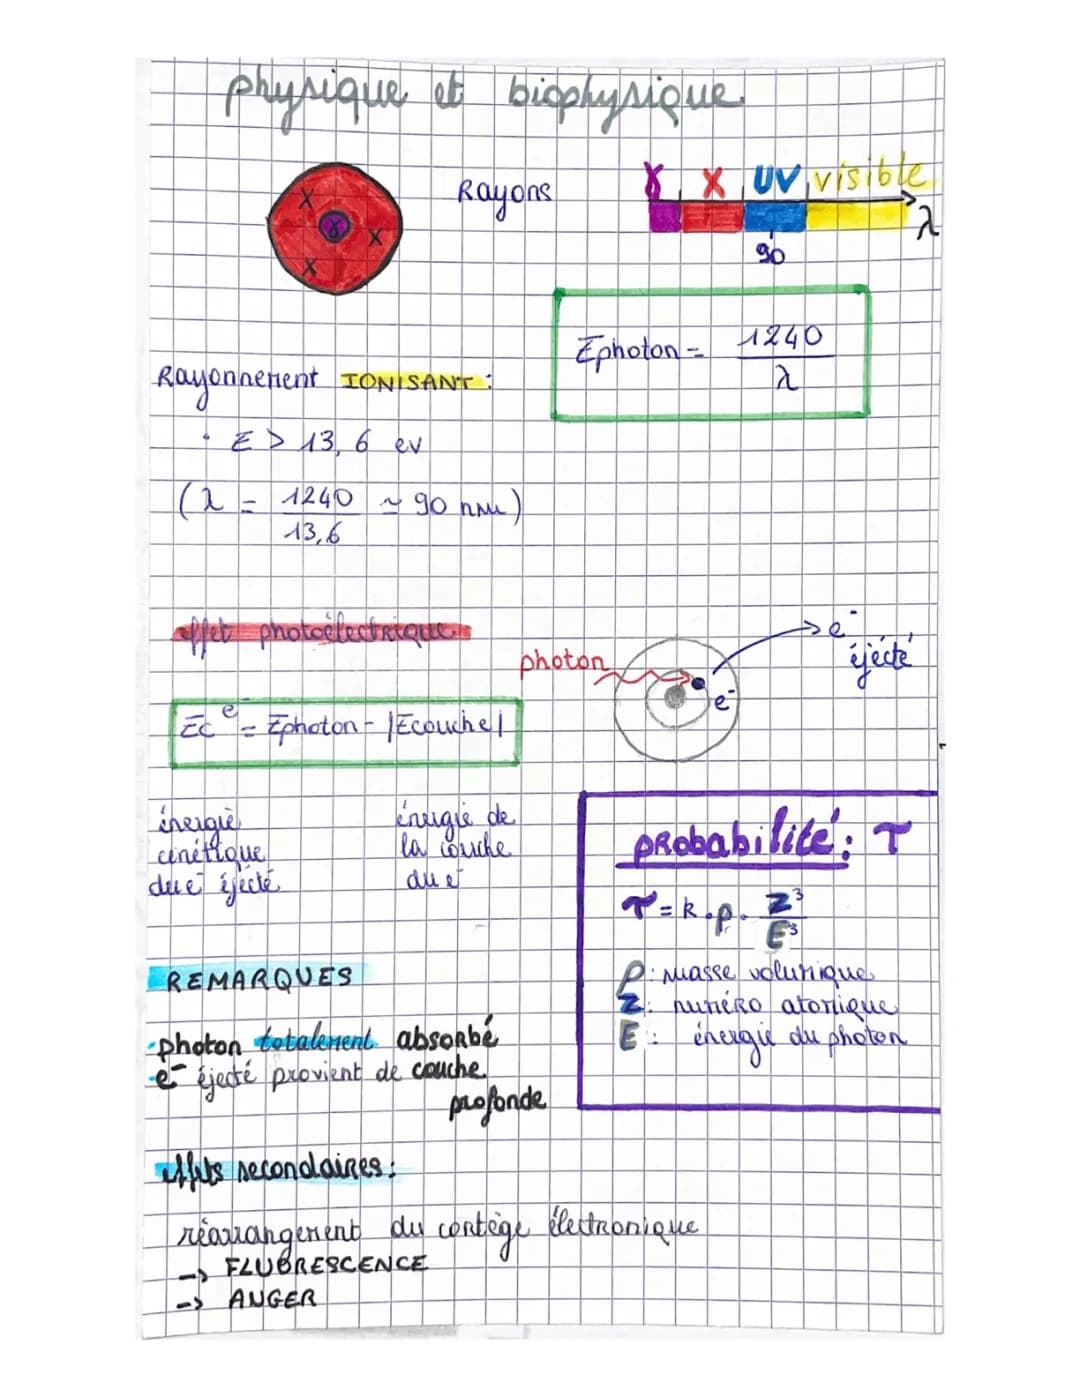 physique et biophysique
X
X
X
γ
Rayons
γ X UV visible
λ
90
Ephoton = 1240 / λ
Rayonnement IONISANT :
• E > 13,6 ev
(λ = 1240 / 13,6 ≃ 90 nm)
effet photoélectrique
photon
e⁻
e⁻ éjecté
Ec e⁻ = Ephoton - |Ecouche|
énergie
cinétique
du e⁻ éjecté
énergie de
la couche
du e⁻
probabilité : τ
τ = k . ρ . Z³ / E³
ρ : masse volumique
Z : numéro atomique
E : énergie du photon
REMARQUES
• photon totalement absorbé
• e⁻ éjecté provient de couche
profonde
effets secondaires :
réarrangement du cortège électronique
→ FLUORESCENCE
→ AUGER